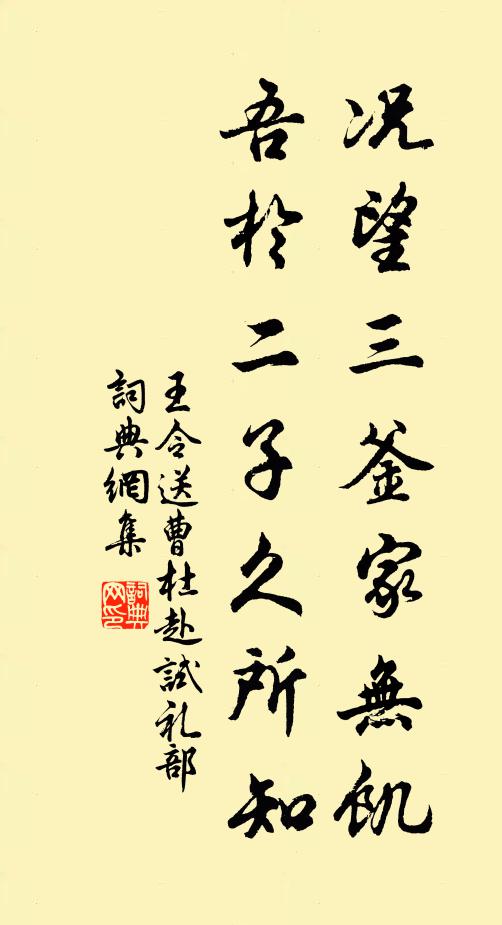 况望三釜家無飢
吾於二子久所知
王令送曹杜赴試礼部
詞典網集
詞典网印